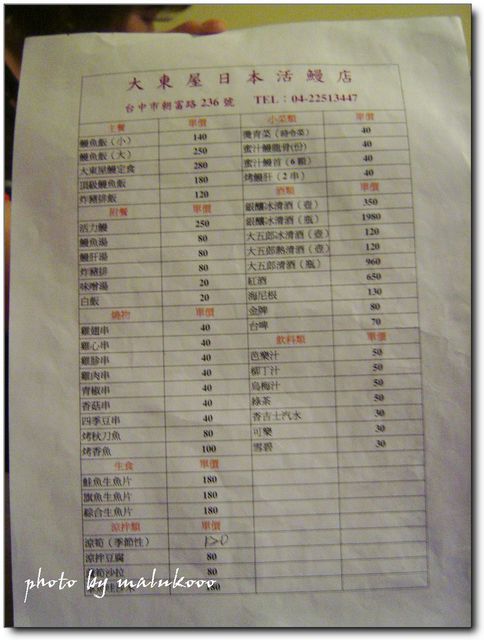 大東屋日本活鰻店
台中市朝富路 236 號 TEL：04-22513447
主餐 單價
鰻魚飯（小） 140
鰻魚飯（大） 250
大東屋鰻定食 280
頂級鰻魚飯 180
炸豬排飯 120
附餐 單價
活力鰻 250
鰻魚湯 80
鰻肝湯 80
炸豬排 80
味噌湯 20
白飯 20
燒物 單價
雞翅串 40
雞心串 40
雞胗串 40
雞肉串 40
青椒串 40
香菇串 40
四季豆串 40
烤秋刀魚 80
烤香魚 100
生食 單價
鮭魚生魚片 180
旗魚生魚片 180
綜合生魚片 180
涼拌類 單價
涼筍（季節性）
涼拌豆腐 80
沙拉 80
180
小菜類 單價
燙青菜（時令菜） 40
蜜汁鰻龍骨(份) 40
蜜汁鰻首（6 顆） 40
烤鰻肝（2 串） 40
酒類 單價
銀釀冰清酒（壺） 350
銀釀冰清酒（瓶） 1980
大五郎冰清酒（壺） 120
大五郎熱清酒（壺） 120
大五郎清酒（瓶） 960
紅酒 650
海尼根 130
金牌 80
台啤 70
飲料類 單價
芭樂汁 50
柳丁汁 50
烏梅汁 50
綠茶 50
香吉士汽水 30
可樂 30
雪碧 30
photo by malukooo